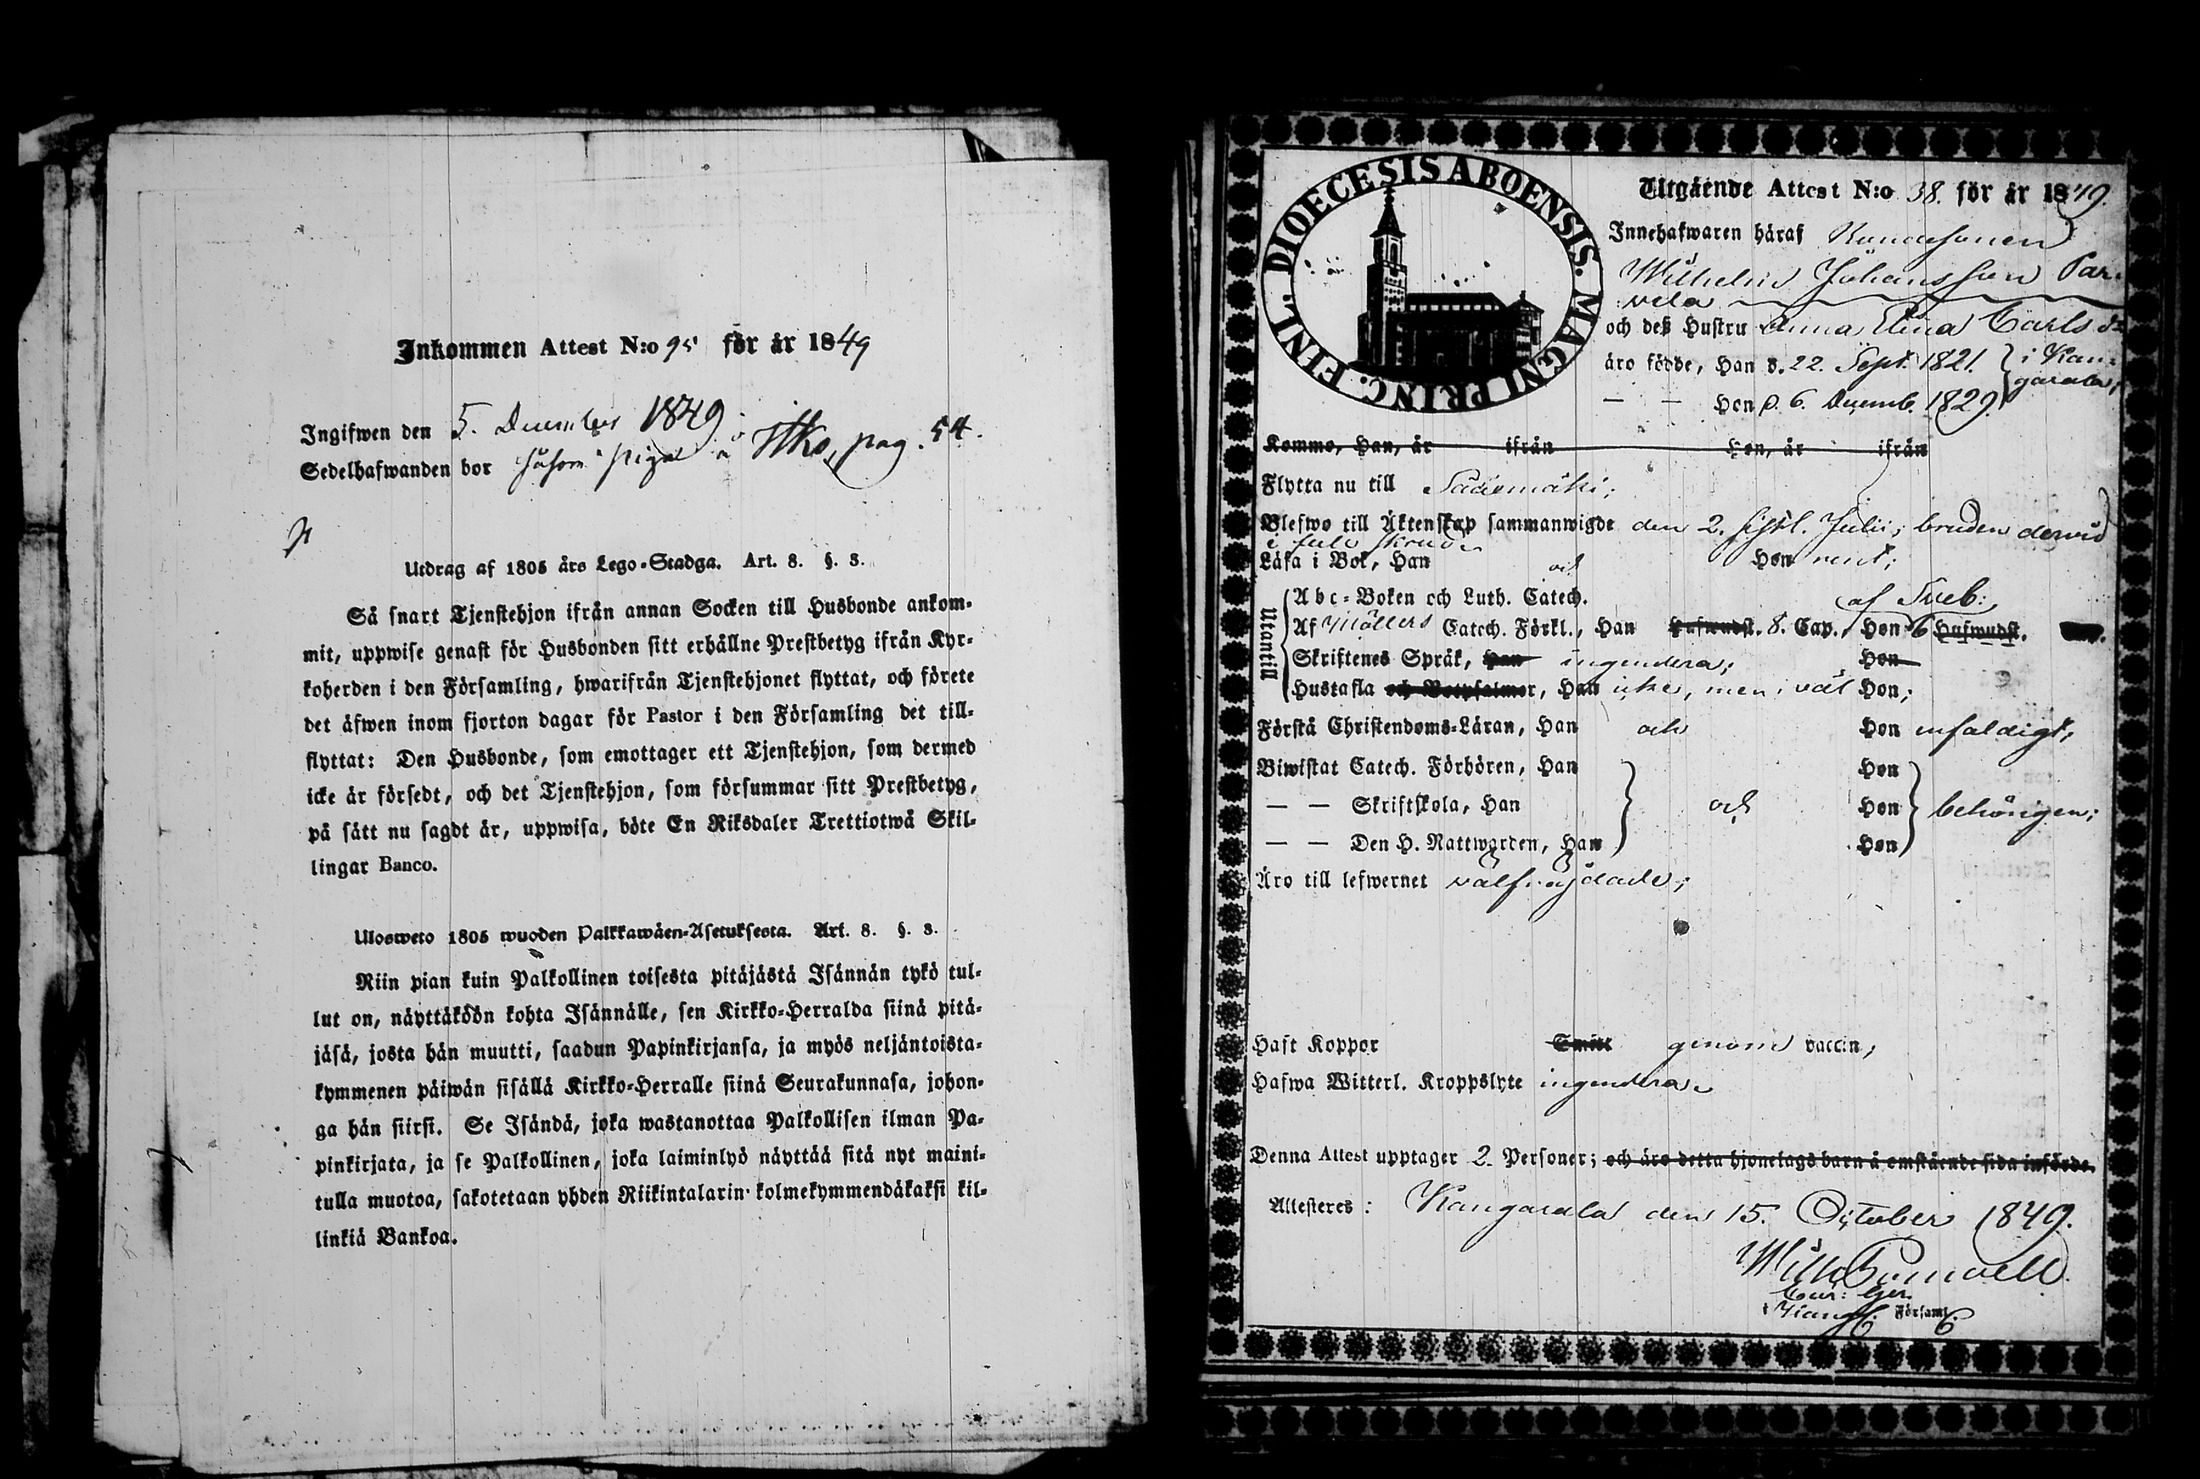 Inkommen Attest N:o 95 för år 1849
Ingifwen den 5. December 1849
Sedelhafwanden bor såsom piga i Itko, pag. 54.
Utdrag af 1805 års Lego-Stadga. Art. 8. §. 3.
Så snart Tjenstehjon ifrån annan Socken till Husbonde ankom-
mit, uppwise genast för Husbonden sitt erhållne Prestbetyg ifrån Kyr-
koherden i den Församling, hwarifrån Tjenstehjonet flyttat, och förete
det äfwen inom fjorton dagar för Pastor i den Församling det till-
flyttat: Den Husbonde, som emottager ett Tjenstehjon, som dermed
icke är försedt, och det Tjenstehjon, som försummar sitt Prestbetyg,
på sätt nu sagdt är, uppwisa, böte En Riksdaler Trettiotwå Skil-
lingar Banco.
Ulosweto 1805 wuoden Palkkawäen-Asetuksesta. Art. 8. §. 3.
Niin pian kuin Palkollinen toisesta pitäjästä Isännän tykö tul-
lut on, näyttäköön kohta Isännälle, sen Kirkko-Herralda siinä pitä-
jäsä, josta hän muutti, saadun Papinkirjansa, ja myös neljäntoista-
kymmenen päiwän sisällä Kirkko-Herralle siinä Seurakunnasa, johon-
ga hän siirsi. Se Isändä, joka wastanottaa Palkollisen ilman Pa-
pinkirjata, ja se Palkollinen, joka laiminlyö näyttää sitä nyt maini-
tulla muotoa, sakotetaan yhden Riikintalarin kolmekymmendäkaksi kil-
linkiä Bankoa.
DIOECESIS ABOENSIS. MAGNI PRINC. FINL.
Utgående Attest N:o 38. för år 1849.
Innehafwaren häraf
Wilhelm Johansson Par-
vela
och deß Hustru Anna Elina Carlsdr
äro födde, Han d. 22. Sept. 1821. i Kan-
garala,
— — Hon d. 6. Decemb. 1829.
Kommo, Han, år ifrån Hon, år ifrån
Flytta nu till Sääxmäki;
Blefwo till Äktenskap sammanwigde den 2. sistl. Julii; bruden dervid
i full skrud.
Läsa i Bok, Han och Hon rent;
Utantill
Abc-Boken och Luth. Catech. af Sveb:
Af Möllers Catech. Förkl., Han Hufwudst. 8. Cap., Hon 6 Hufwudst.
Skriftenes Språk, Han ingendera; Hon
Hustafla och Botpsalmer, Han icke, men väl Hon;
Förstå Christendoms-Läran, Han och Hon enfaldigt,
Biwistat Catech. Förhören, Han Hon
— — Skriftskola, Han och Hon behörigen;
— — Den H. Nattwarden, Han Hon
Äro till lefwernet välfräjdade;
Haft Koppor Smitt genom vaccin,
Hafwa Witterl. Kroppslyte ingendera.
Denna Attest upptager 2. Personer; och äro detta hjonelags barn å omstående sida införde.
Attesteras: Kangasala den 15. October 1849.
Wilh.
Församl.